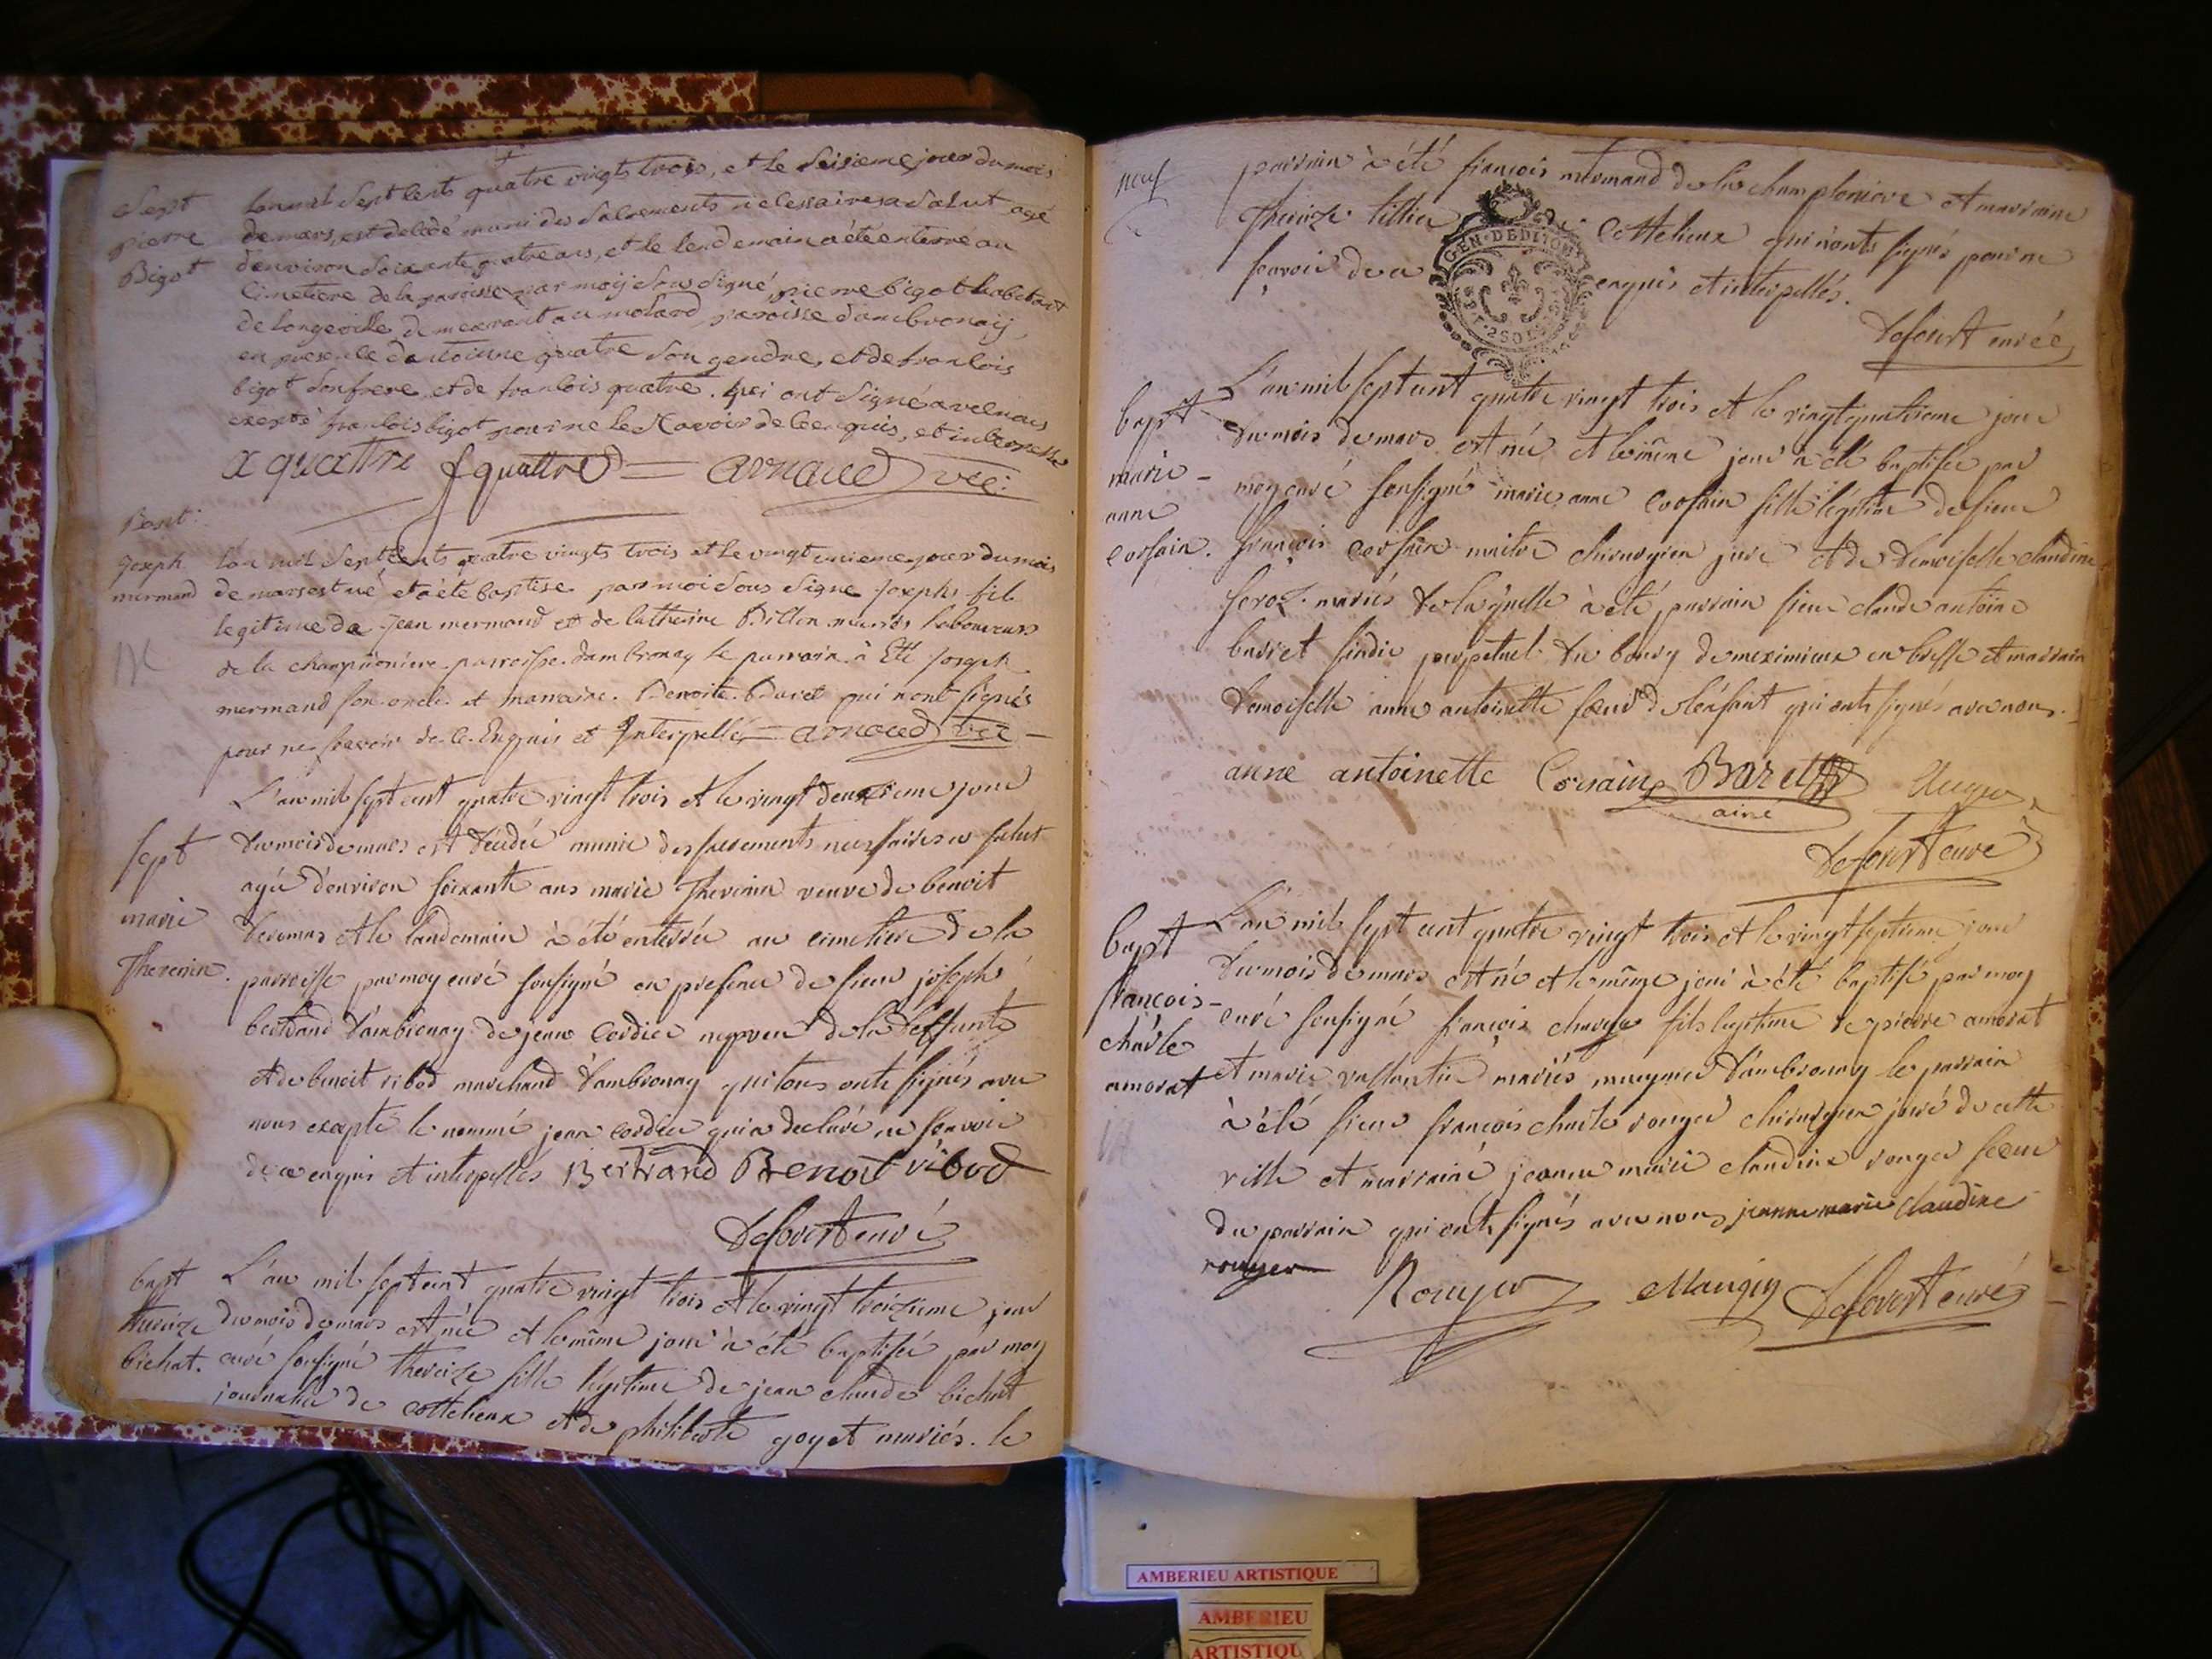 Sept
pierre
Bigot
Lan mil Sept Cents quatre vingts trois, et le Seisieme jour du mois
de mars, est decedé muni des Sacrements necessaires a Salut agé
denviron Soixante quatre ans, et le lendemain a été enterré au
Cimetiere de la paroisse par moij Sous Signé pierre bigot habitant
de longeville demeurant au molard, paroisse dambronaij,
en presence dantoinne quatre Son gendre, et de francois
bigot Son frere et de francois quatre. qui ont Signé avec nous
excepté francois bigot pour ne le Scavoir de ce enquis, et interpellé
a quattre f quattre = arnaud vic:
Bapt.
Joseph
mermand
Lan mil Sept Cents quatre vingts trois et le vingt unieme jour du mois
de mars est né et a été baptise par moi Sous Signe Joseph fil
legitime de Jean mermand et de Catherine Billon mariés laboureurs
de la championiere parroisse dambronay le parrain à Eté Joseph
mermand son oncle et marraine Benoite Buret qui n'ont signés
pour ne scavoir de ce Enquis et Interpellés = arnaud vic
Sept
marie
Thevenin.
L'an mil sept cent quatre vingt trois et le vingt deuxieme jour
du mois de mars est décedée munie des sacrements necessaires a salut
agée d'environ soixante ans marie Thevenin veuve de benoit
et le landemain à été enterrée au cimetiere de la
parroisse par moy curé sousigné en presence de sieur joseph
bertrand d'ambronay de jean Cordier nepveu de la deffunte
et de benoit ribod marchand d'ambronay qui tous onts signés avec
nous excepté le nommé jean cordier qui a declaré ne scavoir
de ce enquis et interpellés Bertrand Benoit ribod
Defovert curé
bapt
thereize
bichat.
L'an mil sept cent quatre vingt trois et le vingt troizieme jour
du mois de mars est née et le même jour à été baptisée par moy
curé sousigné thereize fille legitime de jean claude bichat
journalier de cottelieux et de philiberte goyet mariés. le
neuf
parrain à été françois mermand de la championiere et marraine
Thereize tillier de Cottelieux qui n'onts signés pour ne
sçavoir de ce enquis et interpellés.
GEN. DE DIJON
2 SOLS
Defovert curé
bapt
marie -
anne
corsain.
L'an mil sept cent quatre vingt trois et le vingt quatrieme jour
du mois de mars est née et le même jour a été baptisée par
moy curé sousigné marie anne corsain fille légitime de sieur
françois corsain maitre chirurgien juré et de demoiselle claudine
feroz mariés de laquelle à été parrain sieur claude antoine
barret sindic perpetuel du bourg de meximieux en bresse et marraine
demoiselle anne antoinette sœur de l'enfant qui onts signés avec nous.
anne antoinette Corsain Baret
ainé
Defovert curé
bapt
françois -
charle
amorat
L'an mil sept cent quatre vingt trois et le vingt septieme jour
du mois de mars est né et le même jour à été baptisé par moy
curé sousigné françois charle fils legitime de pierre amorat
et marie vallantin mariés d'ambronay le parrain
à été sieur françois charle rouger chirurgien juré de cette
ville et marraine jeanne marie claudine rouger sœur
du parrain qui onts signés avec nous jeanne marie claudine
rouger Rouger Maugin Defovert curé
AMBERIEU ARTISTIQUE
AMBERIEU
ARTISTIQU